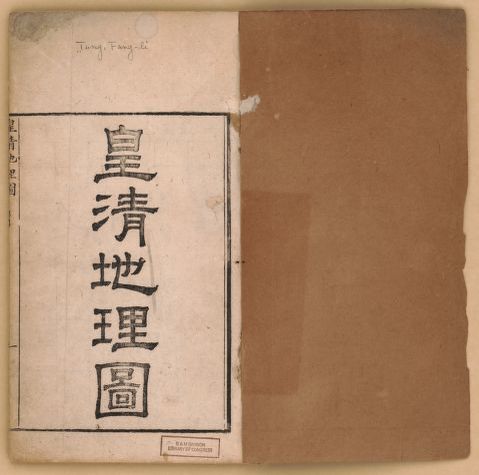 Tung, Fang-li
皇清地理圖
皇清地理圖
LIBRARY OF CONGRESS